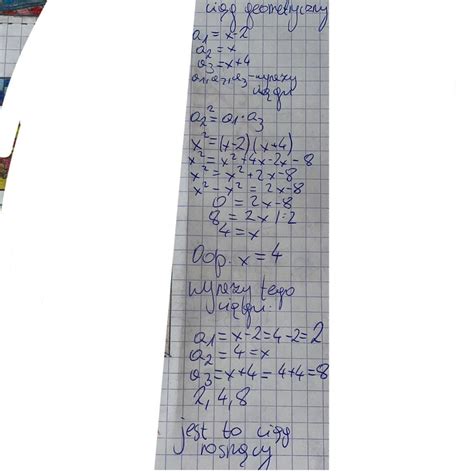 ciąg geometryczny
a1 = x-2
a2 = x
a3 = x+4
a1, a2, a3 - wyrazy
ciągu
a2² = a1 · a3
x² = (x-2)(x+4)
x² = x² + 4x - 2x - 8
x² = x² + 2x - 8
x² - x² = 2x - 8
0 = 2x - 8
8 = 2x |:2
4 = x
Odp. x = 4
wyrazy tego
ciągu:
a1 = x-2 = 4-2 = 2
a2 = 4 = x
a3 = x+4 = 4+4 = 8
2, 4, 8
jest to ciąg
rosnący